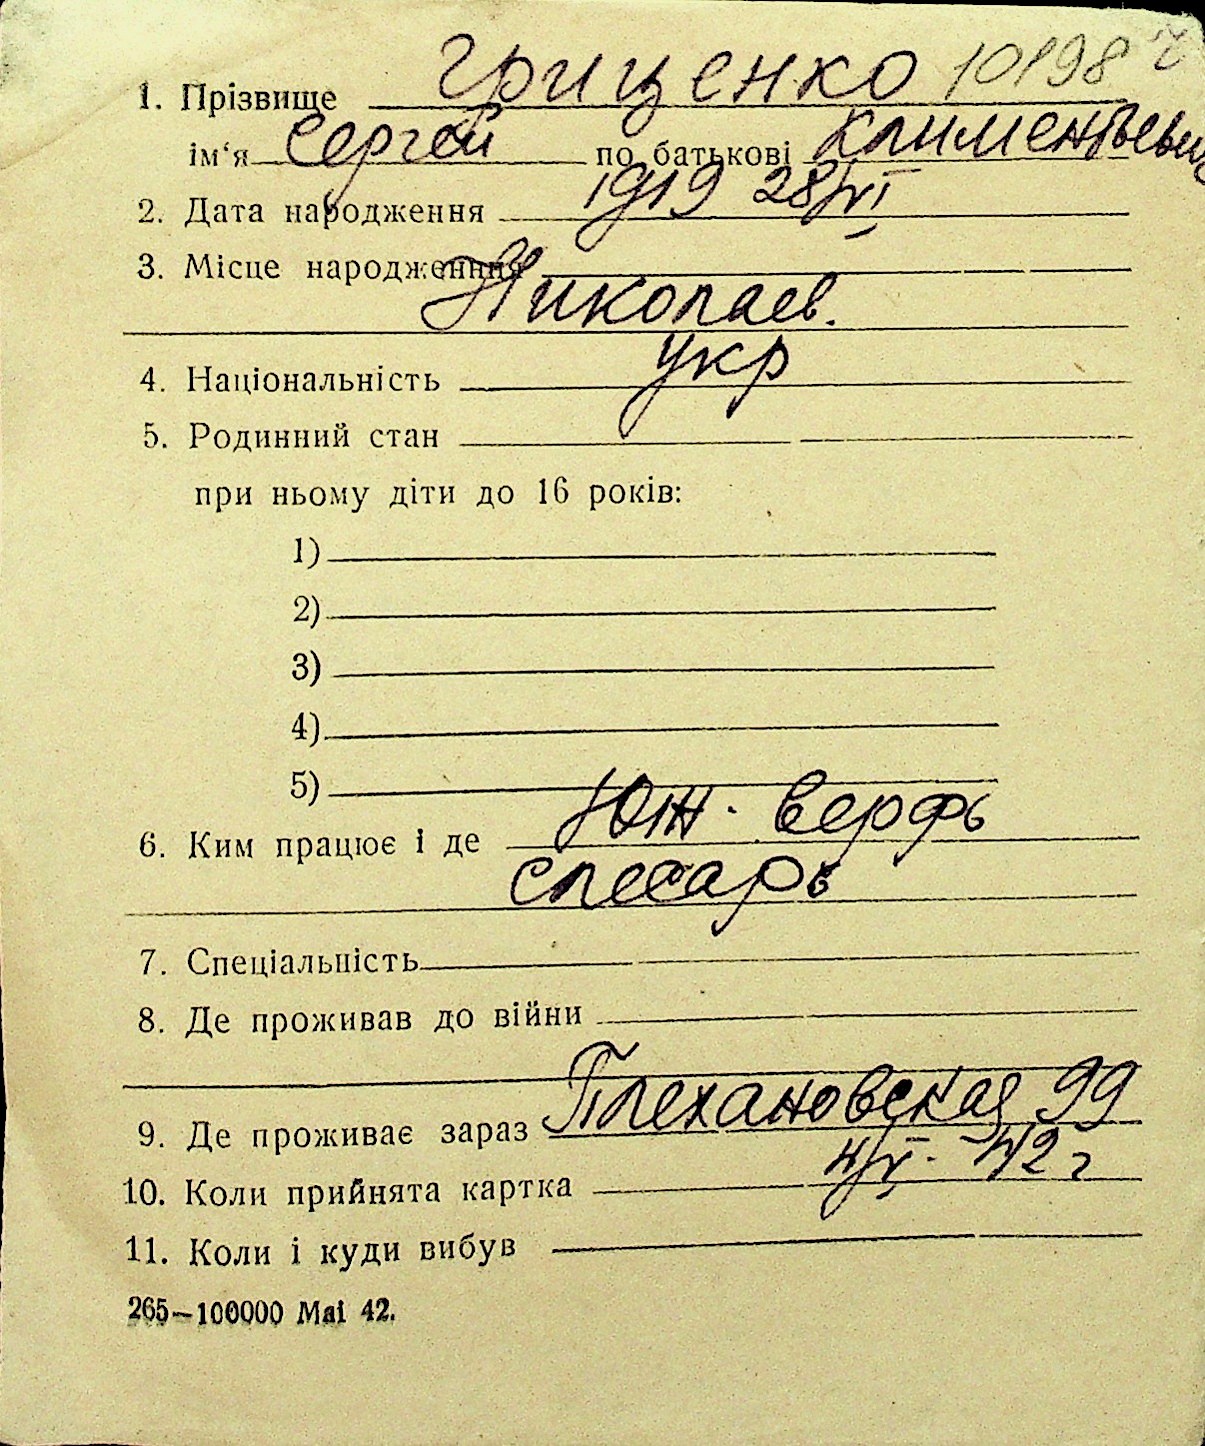 1. Прізвище Гриценко 10198
ім‘я Сергей по батькові Климентьевич
2. Дата народження 1919 28/VI
3. Місце народження
Николаев.
4. Національність укр
5. Родинний стан
при ньому діти до 16 років:
1)
2)
3)
4)
5)
6. Ким працює і де Юж. верфь
слесарь
7. Спеціальність
8. Де проживав до війни
9. Де проживає зараз Плехановская 99
10. Коли прийнята картка 42 г
11. Коли і куди вибув
265—100000 Mai 42.